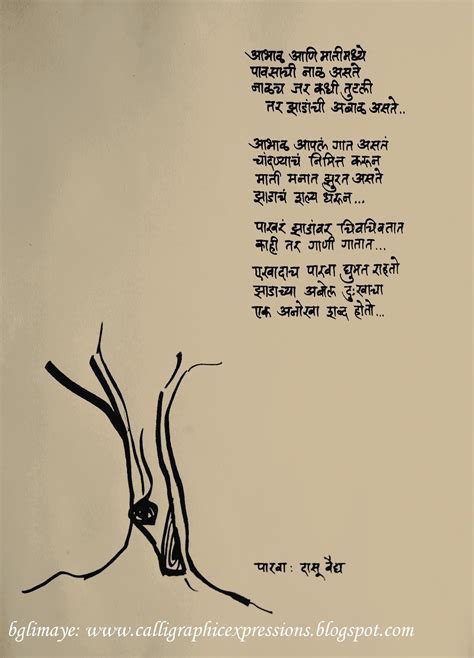 आभाळ आणि मातीमध्ये
पावसाची नाळ असते
नाळच जर कधी तुटली
तर झाडांची अबाळ असते..
आभाळ आपलं गात असतं
चांदण्याचं निमित्त करून
माती मनात झुरत असते
झाडाचं शल्य धरून...
पाखरं झाडांवर चिवचिवतात
काही तर गाणी गातात...
एखादाच पारवा घुमत राहतो
झाडाच्या अबोल दुःखाचा
एक अनोखा शब्द होतो...
पारवा: रासू वैद्य
bglimaye: www.calligraphicexpressions.blogspot.com